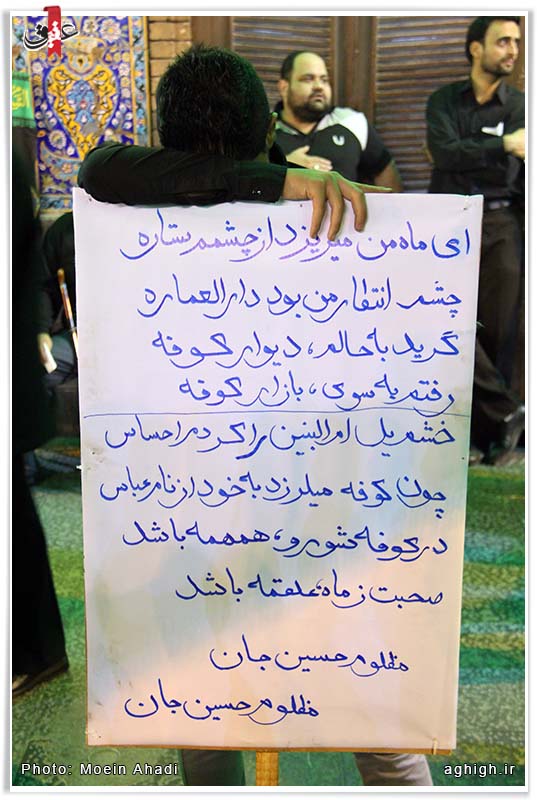 عقیق
ای ماه من میریزد از چشمم ستاره
چشم انتظار من بود دارالعماره
گرید به حالم، دیوار کوفه
رفتم به سوی، بازار کوفه
خشم یل ام البنین را کردم احساس
چون کوفه میلرزد به خود از نام عباس
در کوفه شور و، همهمه باشد
صحبت ز ماه، علقمه باشد
مظلوم حسین جان
مظلوم حسین جان
Photo: Moein Ahadi
aghigh.ir